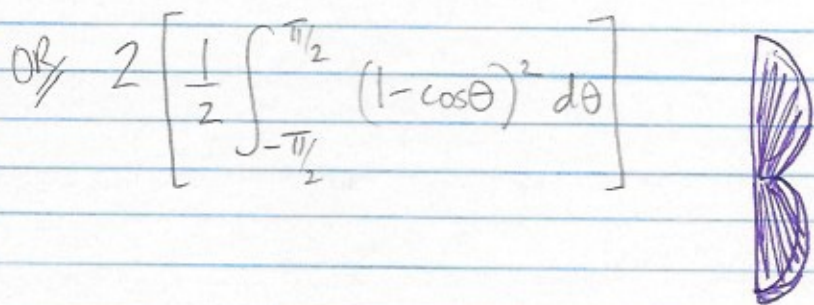 OR// 2 [ 1/2 ∫_{-π/2}^{π/2} (1-cosθ)² dθ ]